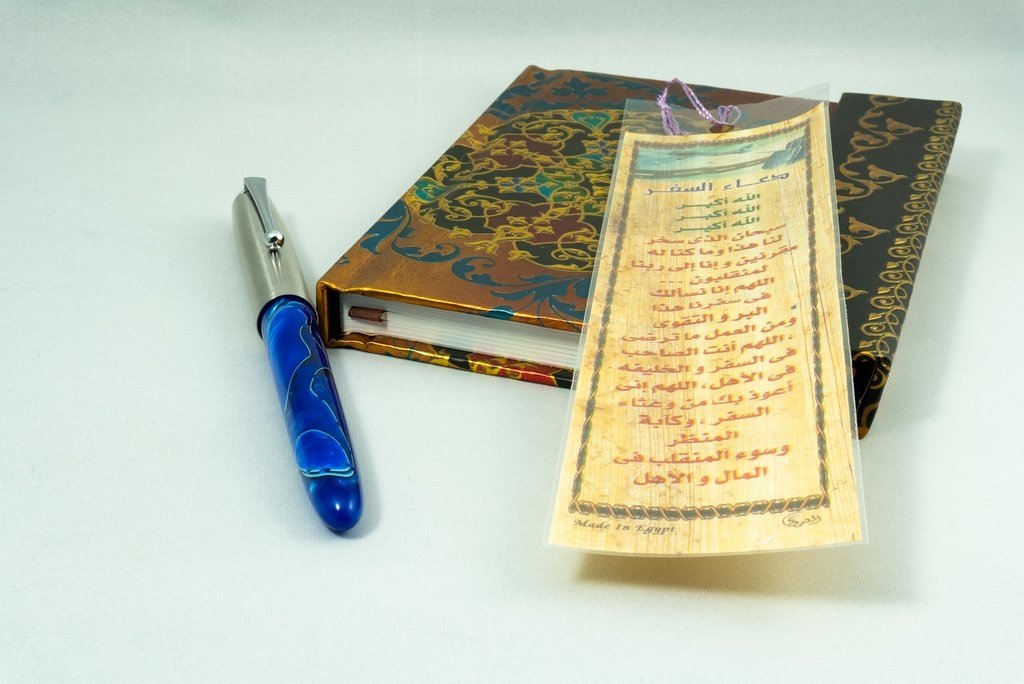 دعاء السفر
الله أكبر
الله أكبر
الله أكبر
سبحان الذى سخر
لنا هذا وما كنا له
مقرنين وإنا إلى ربنا
لمنقلبون
اللهم إنا نسألك
فى سفرنا هذا
البر و التقوى
ومن العمل ما ترضى
، اللهم أنت الصاحب
فى السفر و الخليفه
فى الأهل، اللهم إنى
أعوذ بك من وعثاء
السفر ، وكآبة
المنظر
وسوء المنقلب فى
المال و الأهل
Made In Egypt